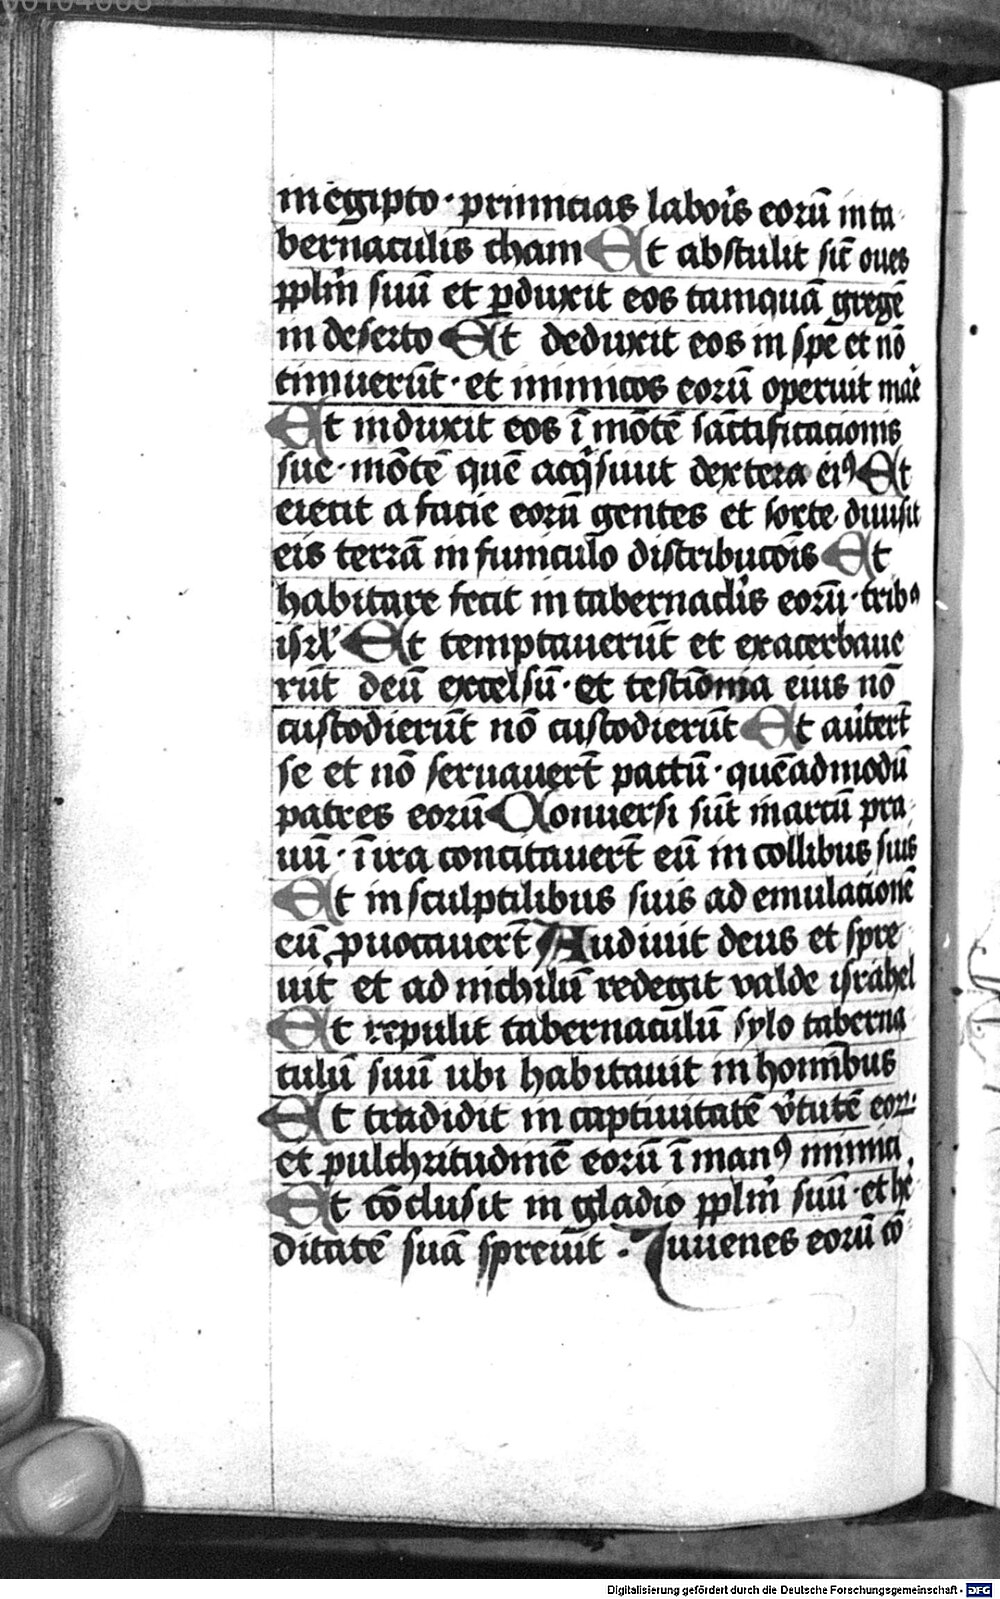 in egipto · primicias laboꝝis eorū in ta
bernaculis cham Et abstulit sic̄ oues
pplm̄ suū et ꝑduxit eos tamquā gregē
in deserto Et deduxit eos in spe et nō
timuerūt · et inimicos eorū operuit mar̄e
Et induxit eos ī mōtē sāctificacionis
sue · mōtē quē acq̓siuit dextera eiꝰ Et
eiecit a facie eorū gentes et sorte diuisit
eis terrā in funiculo distribucōis Et
habitare fecit in tabernacl̓is eorū · tribꝰ
isrl̓ Et temptauerūt et exacerbaue
rūt deū excelsū · et testiōnia eius nō
custodierūt nō custodierūt Et au̓tert̄
se et nō seruauert̄ pactū · quēadmodū
patres eorū Conuersi sūt in arcū pra
uū · ī ira concitauert̄ eū in collibus suis
Et in sculptilibus suis ad emulacionē
eū ꝓuocauert̄ Audiuit deus et spre
uit et ad nichilū redegit valde israhel
Et repulit tabernaculū sylo taberna
culū suū ubi habitauit in homībus
Et tradidit in captiuitatē v̓tutē eoꝝ
et pulchritudinē eorū ī manꝰ inimici
Et cōclusit in gladio pplm̄ suū · et he
ditatē suā spreuit · Iuuenes eorū cō
Digitalisierung gefördert durch die Deutsche Forschungsgemeinschaft - DFG